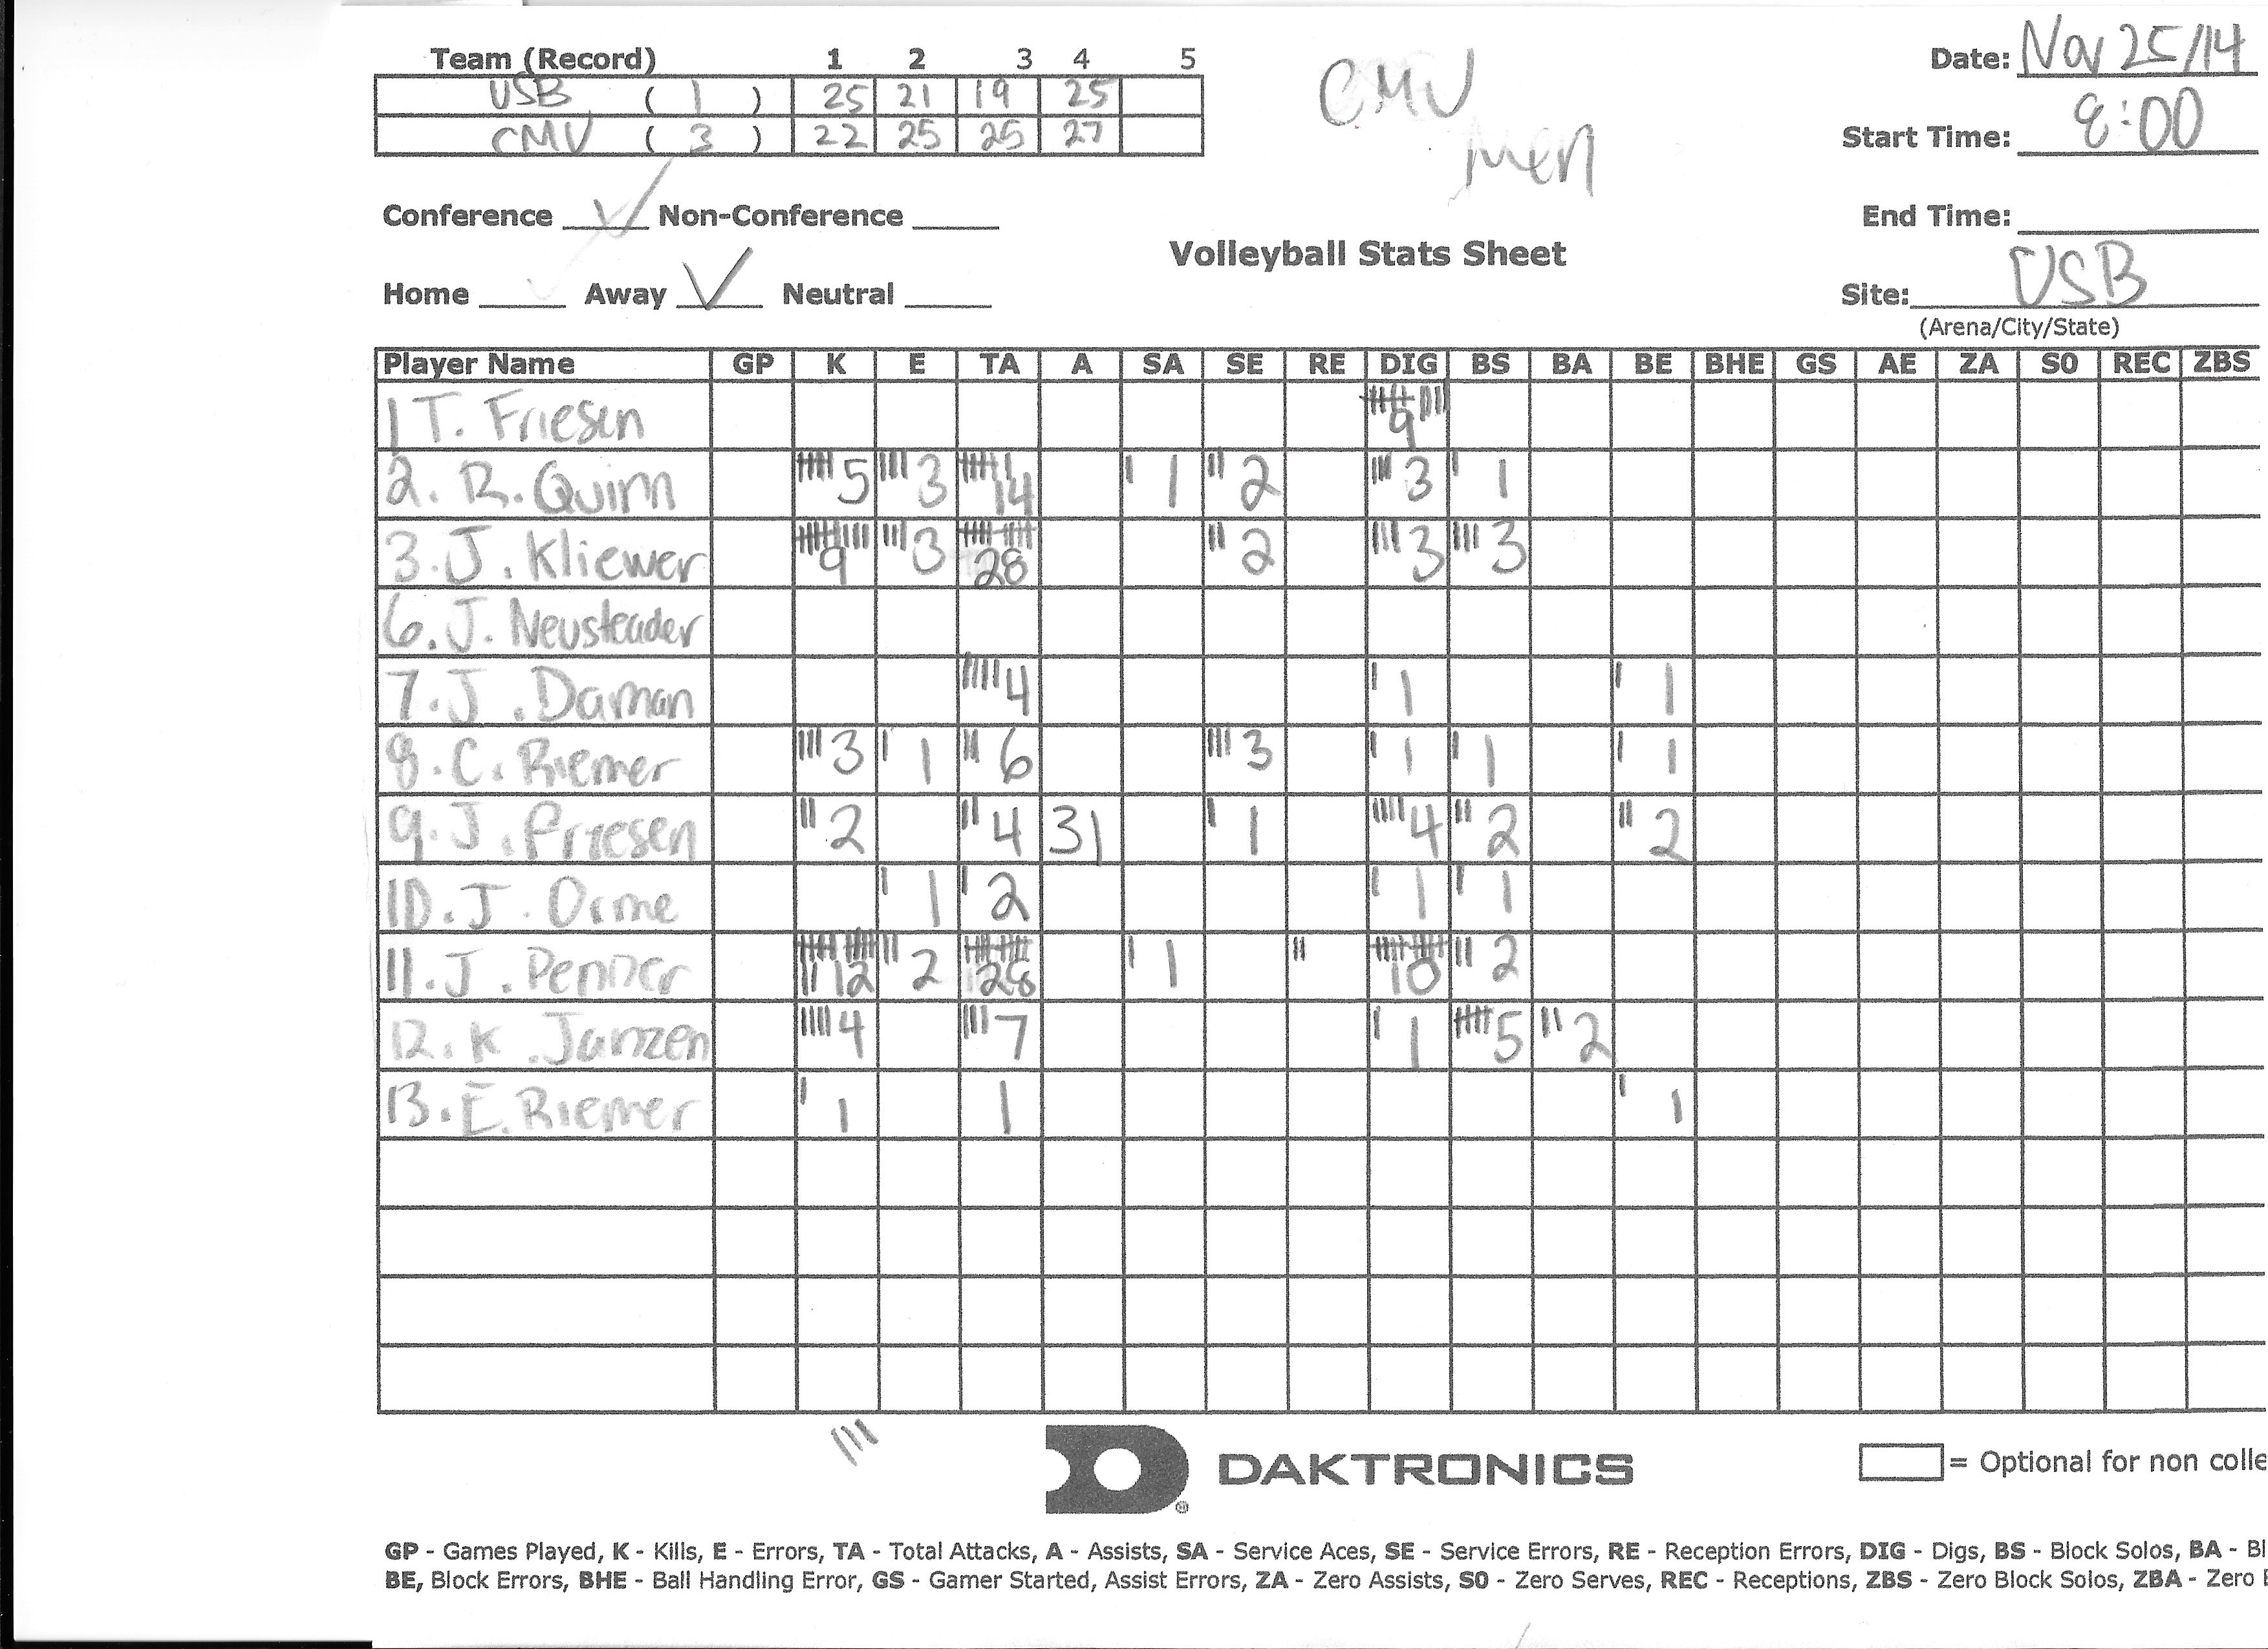 Team (Record) 1 2 3 4 5
USB ( 1 ) 25 21 19 25
CMU ( 3 ) 22 25 25 27
CMU
Men
Date: Nov 25/14
Start Time: 8:00
End Time:
Conference ✓ Non-Conference
Home Away ✓ Neutral
Volleyball Stats Sheet
Site: USB
(Arena/City/State)
Player Name GP K E TA A SA SE RE DIG BS BA BE BHE GS AE ZA S0 REC ZBS
1 T. Friesen 9
2. R. Quinn 5 3 14 1 2 3 1
3. J. Kliewer 9 3 28 2 3 3
6. J. Neusteader
7. J. Daman 4 1 1
8. C. Riemer 3 1 6 3 1 1 1
9. J. Friesen 2 4 31 1 4 2 2
10. J. Orme 1 2 1 1
11. J. Penner 12 2 28 1 10 2
12. K. Janzen 4 7 1 5 2
13. E. Riemer 1 1 1
DAKTRONICS
= Optional for non colle
GP - Games Played, K - Kills, E - Errors, TA - Total Attacks, A - Assists, SA - Service Aces, SE - Service Errors, RE - Reception Errors, DIG - Digs, BS - Block Solos, BA - Bl
BE, Block Errors, BHE - Ball Handling Error, GS - Gamer Started, Assist Errors, ZA - Zero Assists, S0 - Zero Serves, REC - Receptions, ZBS - Zero Block Solos, ZBA - Zero